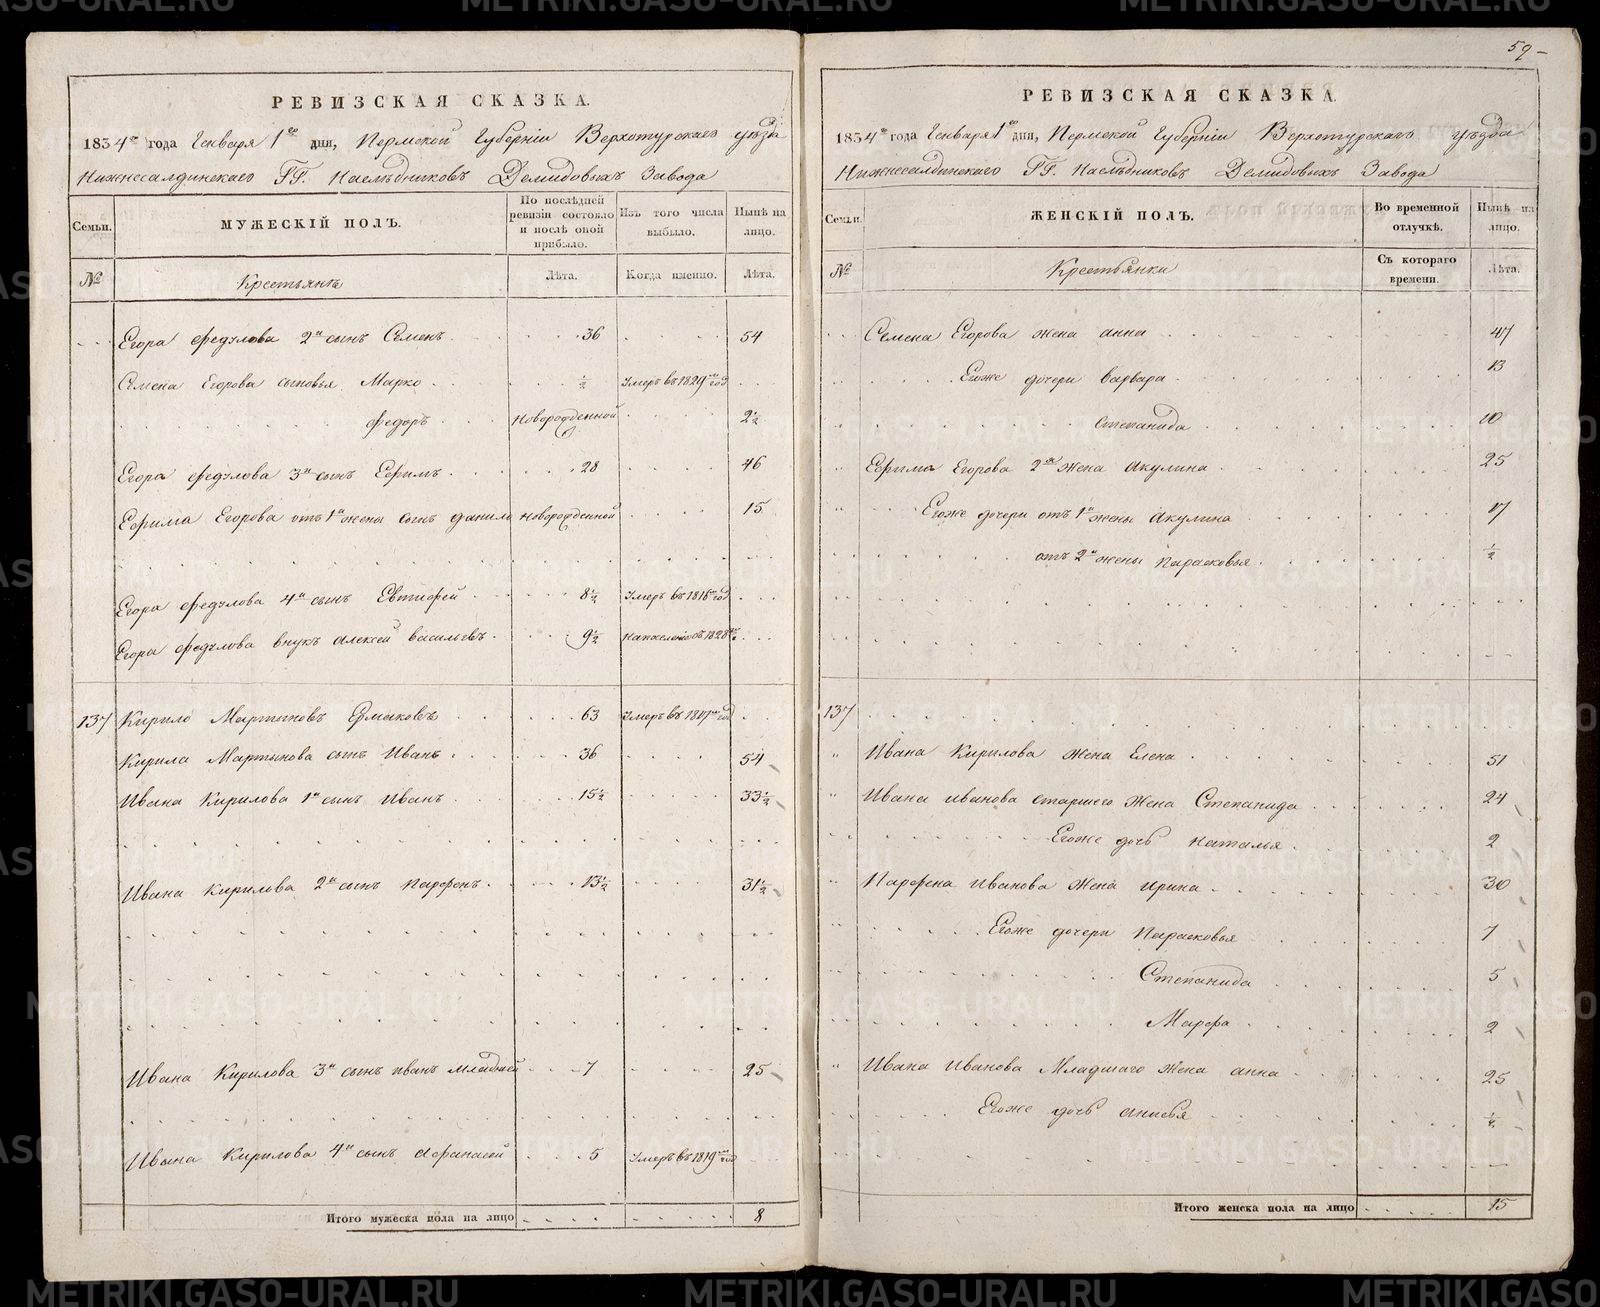 59
РЕВИЗСКАЯ СКАЗКА.
1834го года Генваря 1го дня, Пермской Губерніи Верхотурскаго уѣзда
Нижнесалдинскаго ГГ. Наслѣдниковъ Демидовыхъ Завода
Семьи. МУЖЕСКІЙ ПОЛЪ. По послѣдней ревизіи состояло и послѣ оной прибыло. Изъ того числа выбыло. Нынѣ на лицо.
№ Крестьянъ Лѣта. Когда именно. Лѣта.
Егора Федулова 2й сынъ Семенъ 36 54
Семена Егорова сыновья Марко ½ Умеръ въ 1829м год
Федоръ Новорожденной 2½
Егора Федулова 3й сынъ Ефимъ 28 46
Ефима Егорова отъ 1й жены сынъ Данило Новорожденной 15
Егора Федулова 4й сынъ Евтифей 8½ Умеръ въ 1816м год
Егора Федулова внукъ Алексей Васильевъ 9½ На поселеніе въ 1828м г.
137 Кирило Мартыновъ Ермаковъ 63 Умеръ въ 1817м год
Кирила Мартынова сынъ Иванъ 36 54
Ивана Кирилова 1й сынъ Иванъ 15½ 33½
Ивана Кирилова 2й сынъ Парфенъ 13½ 31½
Ивана Кирилова 3й сынъ Иванъ младшей 7 25
Ивана Кирилова 4й сынъ Афанасей 5 Умеръ въ 1819м год
Итого мужеска пола на лицо 8
РЕВИЗСКАЯ СКАЗКА.
1834го года Генваря 1го дня, Пермской Губерніи Верхотурскаго уѣзда
Нижнесалдинскаго ГГ. Наслѣдниковъ Демидовыхъ Завода
Семьи. ЖЕНСКІЙ ПОЛЪ. Во временной отлучкѣ. Нынѣ на лицо.
№ Крестьянки Съ котораго времени. Лѣта.
Семена Егорова жена Анна 47
Егоже дочери Варвара 13
Степанида 10
Ефима Егорова 2я жена Акулина 25
Егоже дочери отъ 1й жены Акулина 17
отъ 2й жены Парасковья ½
137
Ивана Кирилова жена Елена 51
Ивана Иванова старшего жена Степанида 24
Егоже дочь Наталья 2
Парфена Иванова жена Ирина 30
Егоже дочери Парасковья 7
Степанида 5
Марфа 2
Ивана Иванова Младшаго жена Анна 25
Егоже дочь Анисья
Итого женска пола на лицо 15
METRIKI.GASO-URAL.RU